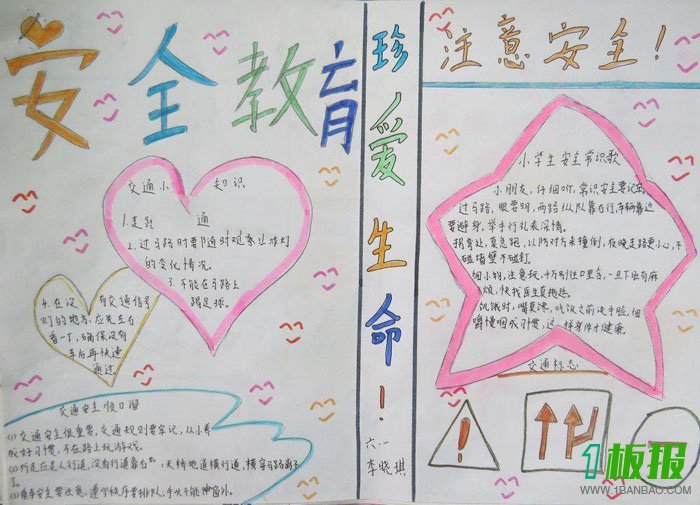 安全教育
交通小知识
1.走路 通
2.过马路时要随时观察红绿灯
的变化情况。
3.不能在马路上
踢足球。
4.在没有交通信号
灯的地方,应先左右
看一下,确保没有
车后再快速
通过。
交通安全顺口溜
(1)交通安全很重要,交通规则要牢记,从小养
成好习惯,不在路上玩游戏。
(2)行走应走人行道,没有行道靠右
(3)乘车安全要注意,遵守秩序要排队;手头不能伸窗外。
珍爱生命!
六一
李晓琪
注意安全!
小学生安全常识歌
小朋友,仔细听,常识安全要记牢
过马路,眼要明,
要避身,举手行礼表深情。
拐弯处,莫急跑,以防对方来撞倒,夜晚走路更小心,不
碰墙壁不碰钉。
细小物,注意玩,千万别往口里含,一旦下肚有麻
烦,快找医生莫拖延。
饥饿时,嘴莫馋,吃饭之前洗手脸,细
嚼慢咽成习惯,这样身体才健康。
交通标志
!
1板报
WWW.1BANBAO.COM